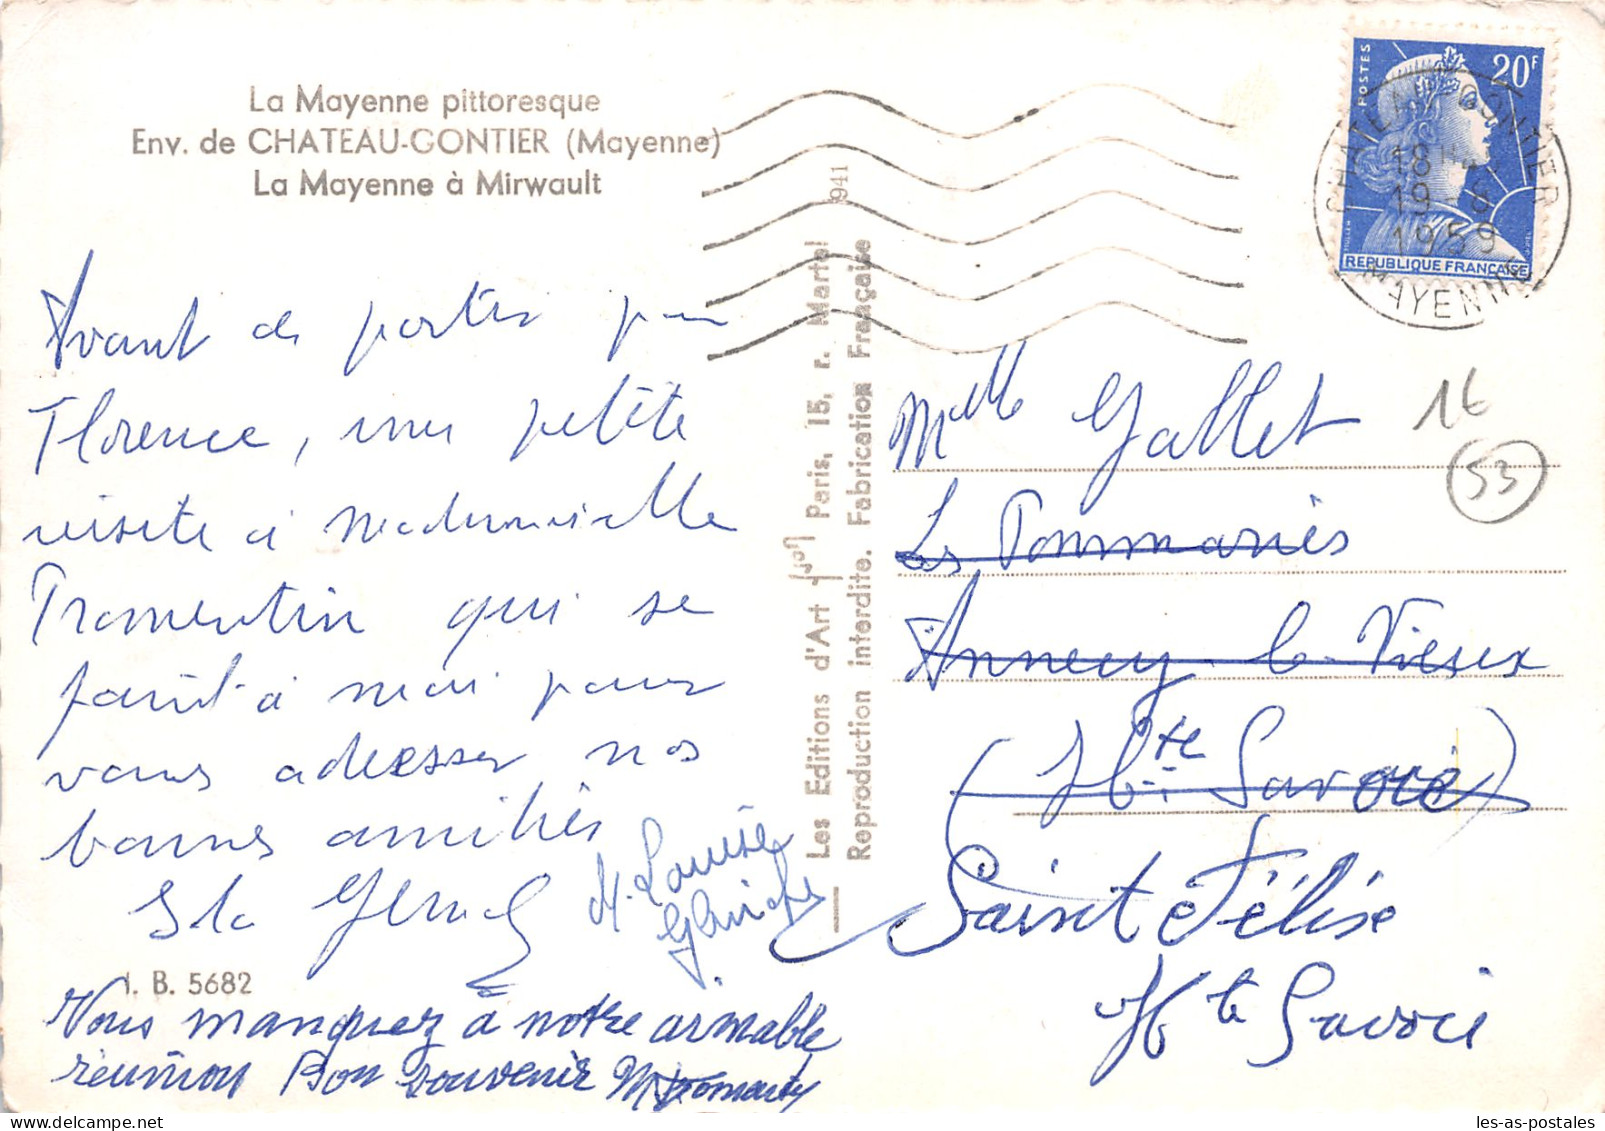 La Mayenne pittoresque
Env. de CHATEAU-GONTIER (Mayenne)
La Mayenne à Mirwault
Avant de partir pour
Florence, une petite
visite à Mademoiselle
Tramentin qui se
joint à moi pour
vous adresser nos
bonnes amitiés
M. Louise
I. B. 5682
Vous manquez à notre aimable
réunion Bon souvenir
Les Editions d'Art Paris, 15, r. Martel 941
Reproduction interdite. Fabrication Française
POSTES
20F
REPUBLIQUE FRANÇAISE
CHATEAU GONTIER
18H
19-8
1959
MAYENNE
16
53
Melle Gallet
Les Pommariés
Annecy-le-Vieux
(Hte Savoie)
Saint Félise
Hte Savoie
les-as-postales